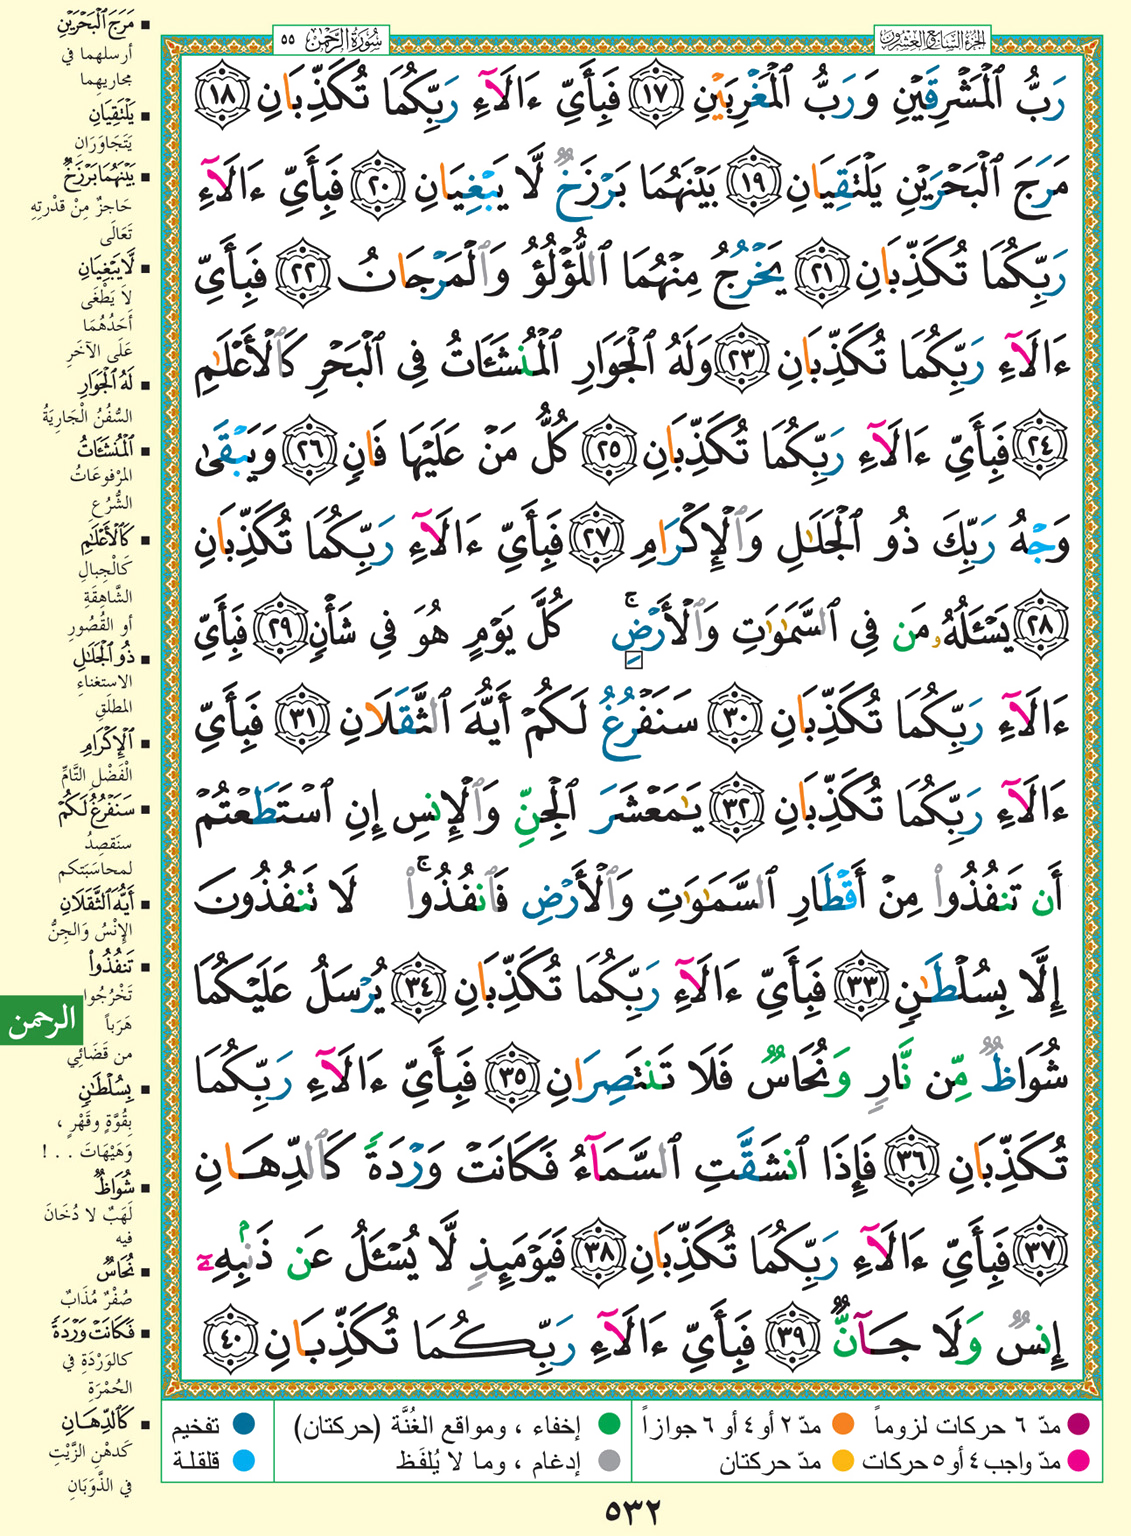 الجزء السابع والعشرون
سورة الرحمن ٥٥
رَبُّ ٱلْمَشْرِقَيْنِ وَرَبُّ ٱلْمَغْرِبَيْنِ ١٧ فَبِأَيِّ ءَالَآءِ رَبِّكُمَا تُكَذِّبَانِ ١٨
مَرَجَ ٱلْبَحْرَيْنِ يَلْتَقِيَانِ ١٩ بَيْنَهُمَا بَرْزَخٌ لَّا يَبْغِيَانِ ٢٠ فَبِأَيِّ ءَالَآءِ
رَبِّكُمَا تُكَذِّبَانِ ٢١ يَخْرُجُ مِنْهُمَا ٱللُّؤْلُؤُ وَٱلْمَرْجَانُ ٢٢ فَبِأَيِّ
ءَالَآءِ رَبِّكُمَا تُكَذِّبَانِ ٢٣ وَلَهُ ٱلْجَوَارِ ٱلْمُنشَـَٔاتُ فِى ٱلْبَحْرِ كَٱلْأَعْلَٰمِ
٢٤ فَبِأَيِّ ءَالَآءِ رَبِّكُمَا تُكَذِّبَانِ ٢٥ كُلُّ مَنْ عَلَيْهَا فَانٍ ٢٦ وَيَبْقَىٰ
وَجْهُ رَبِّكَ ذُو ٱلْجَلَٰلِ وَٱلْإِكْرَامِ ٢٧ فَبِأَيِّ ءَالَآءِ رَبِّكُمَا تُكَذِّبَانِ
٢٨ يَسْـَٔلُهُۥ مَن فِى ٱلسَّمَٰوَٰتِ وَٱلْأَرْضِ ۚ كُلَّ يَوْمٍ هُوَ فِى شَأْنٍ ٢٩ فَبِأَيِّ
ءَالَآءِ رَبِّكُمَا تُكَذِّبَانِ ٣٠ سَنَفْرُغُ لَكُمْ أَيُّهَ ٱلثَّقَلَانِ ٣١ فَبِأَيِّ
ءَالَآءِ رَبِّكُمَا تُكَذِّبَانِ ٣٢ يَٰمَعْشَرَ ٱلْجِنِّ وَٱلْإِنسِ إِنِ ٱسْتَطَعْتُمْ
أَن تَنفُذُوا۟ مِنْ أَقْطَارِ ٱلسَّمَٰوَٰتِ وَٱلْأَرْضِ فَٱنفُذُوا۟ ۚ لَا تَنفُذُونَ
إِلَّا بِسُلْطَٰنٍ ٣٣ فَبِأَيِّ ءَالَآءِ رَبِّكُمَا تُكَذِّبَانِ ٣٤ يُرْسَلُ عَلَيْكُمَا
شُوَاظٌ مِّن نَّارٍ وَنُحَاسٌ فَلَا تَنتَصِرَانِ ٣٥ فَبِأَيِّ ءَالَآءِ رَبِّكُمَا
تُكَذِّبَانِ ٣٦ فَإِذَا ٱنشَقَّتِ ٱلسَّمَآءُ فَكَانَتْ وَرْدَةً كَٱلدِّهَانِ
٣٧ فَبِأَيِّ ءَالَآءِ رَبِّكُمَا تُكَذِّبَانِ ٣٨ فَيَوْمَئِذٍ لَّا يُسْـَٔلُ عَن ذَنۢبِهِۦٓ
إِنسٌ وَلَا جَآنٌّ ٣٩ فَبِأَيِّ ءَالَآءِ رَبِّكُمَا تُكَذِّبَانِ ٤٠
مَرَجَ ٱلْبَحْرَيْنِ
أرسلهما في
مجاريهما
يَلْتَقِيَانِ
يَتَجَاوَرَانِ
بَيْنَهُمَا بَرْزَخٌ
حَاجزٌ مِنْ قدْرتِهِ
تَعَالى
لَّا يَبْغِيَانِ
لاَ يَطْغَى
أحَدُهُمَا
عَلَى الآخَرِ
لَهُ ٱلْجَوَارِ
السُّفُنُ الْجَارِيَةُ
ٱلْمُنشَـَٔاتُ
المرْفوعَاتُ
الشُّرُعِ
كَٱلْأَعْلَٰمِ
كَالْجِبالِ
الشَّاهِقَةِ
أو القُصُورِ
ذُو ٱلْجَلَٰلِ
الاستغناءِ
المطلَقِ
ٱلْإِكْرَامِ
الْفَضْلِ التَّامِّ
سَنَفْرُغُ لَكُمْ
سنَقصِدُ
لمحاسَبَتكم
أَيُّهَ ٱلثَّقَلَانِ
الإنْسُ وَالجِنُّ
تَنفُذُوا۟
تَخْرُجُوا
هَرَباً
من قَضَائِي
بِسُلْطَٰنٍ
بِقُوَّةٍ وقَهْرٍ ،
وَهَيْهَاتَ . . !
شُوَاظٌ
لَهَبٌ لا دُخَانَ
فيه
نُحَاسٌ
صُفْرٌ مُذَابٌ
فَكَانَتْ وَرْدَةً
كالوَرْدَةِ في
الحُمْرَةِ
كَٱلدِّهَانِ
كَدهْنِ الزَّيْتِ
في الذَّوَبَانِ
الرحمن
مدّ ٦ حركات لزوماً
مدّ ٢ أو ٤ أو ٦ جوازاً
إخفاء ، ومواقع الغُنَّة (حركتان)
تفخيم
مدّ واجب ٤ أو ٥ حركات
مدّ حركتان
إدغام ، وما لا يُلفَظ
قلقلة
٥٣٢